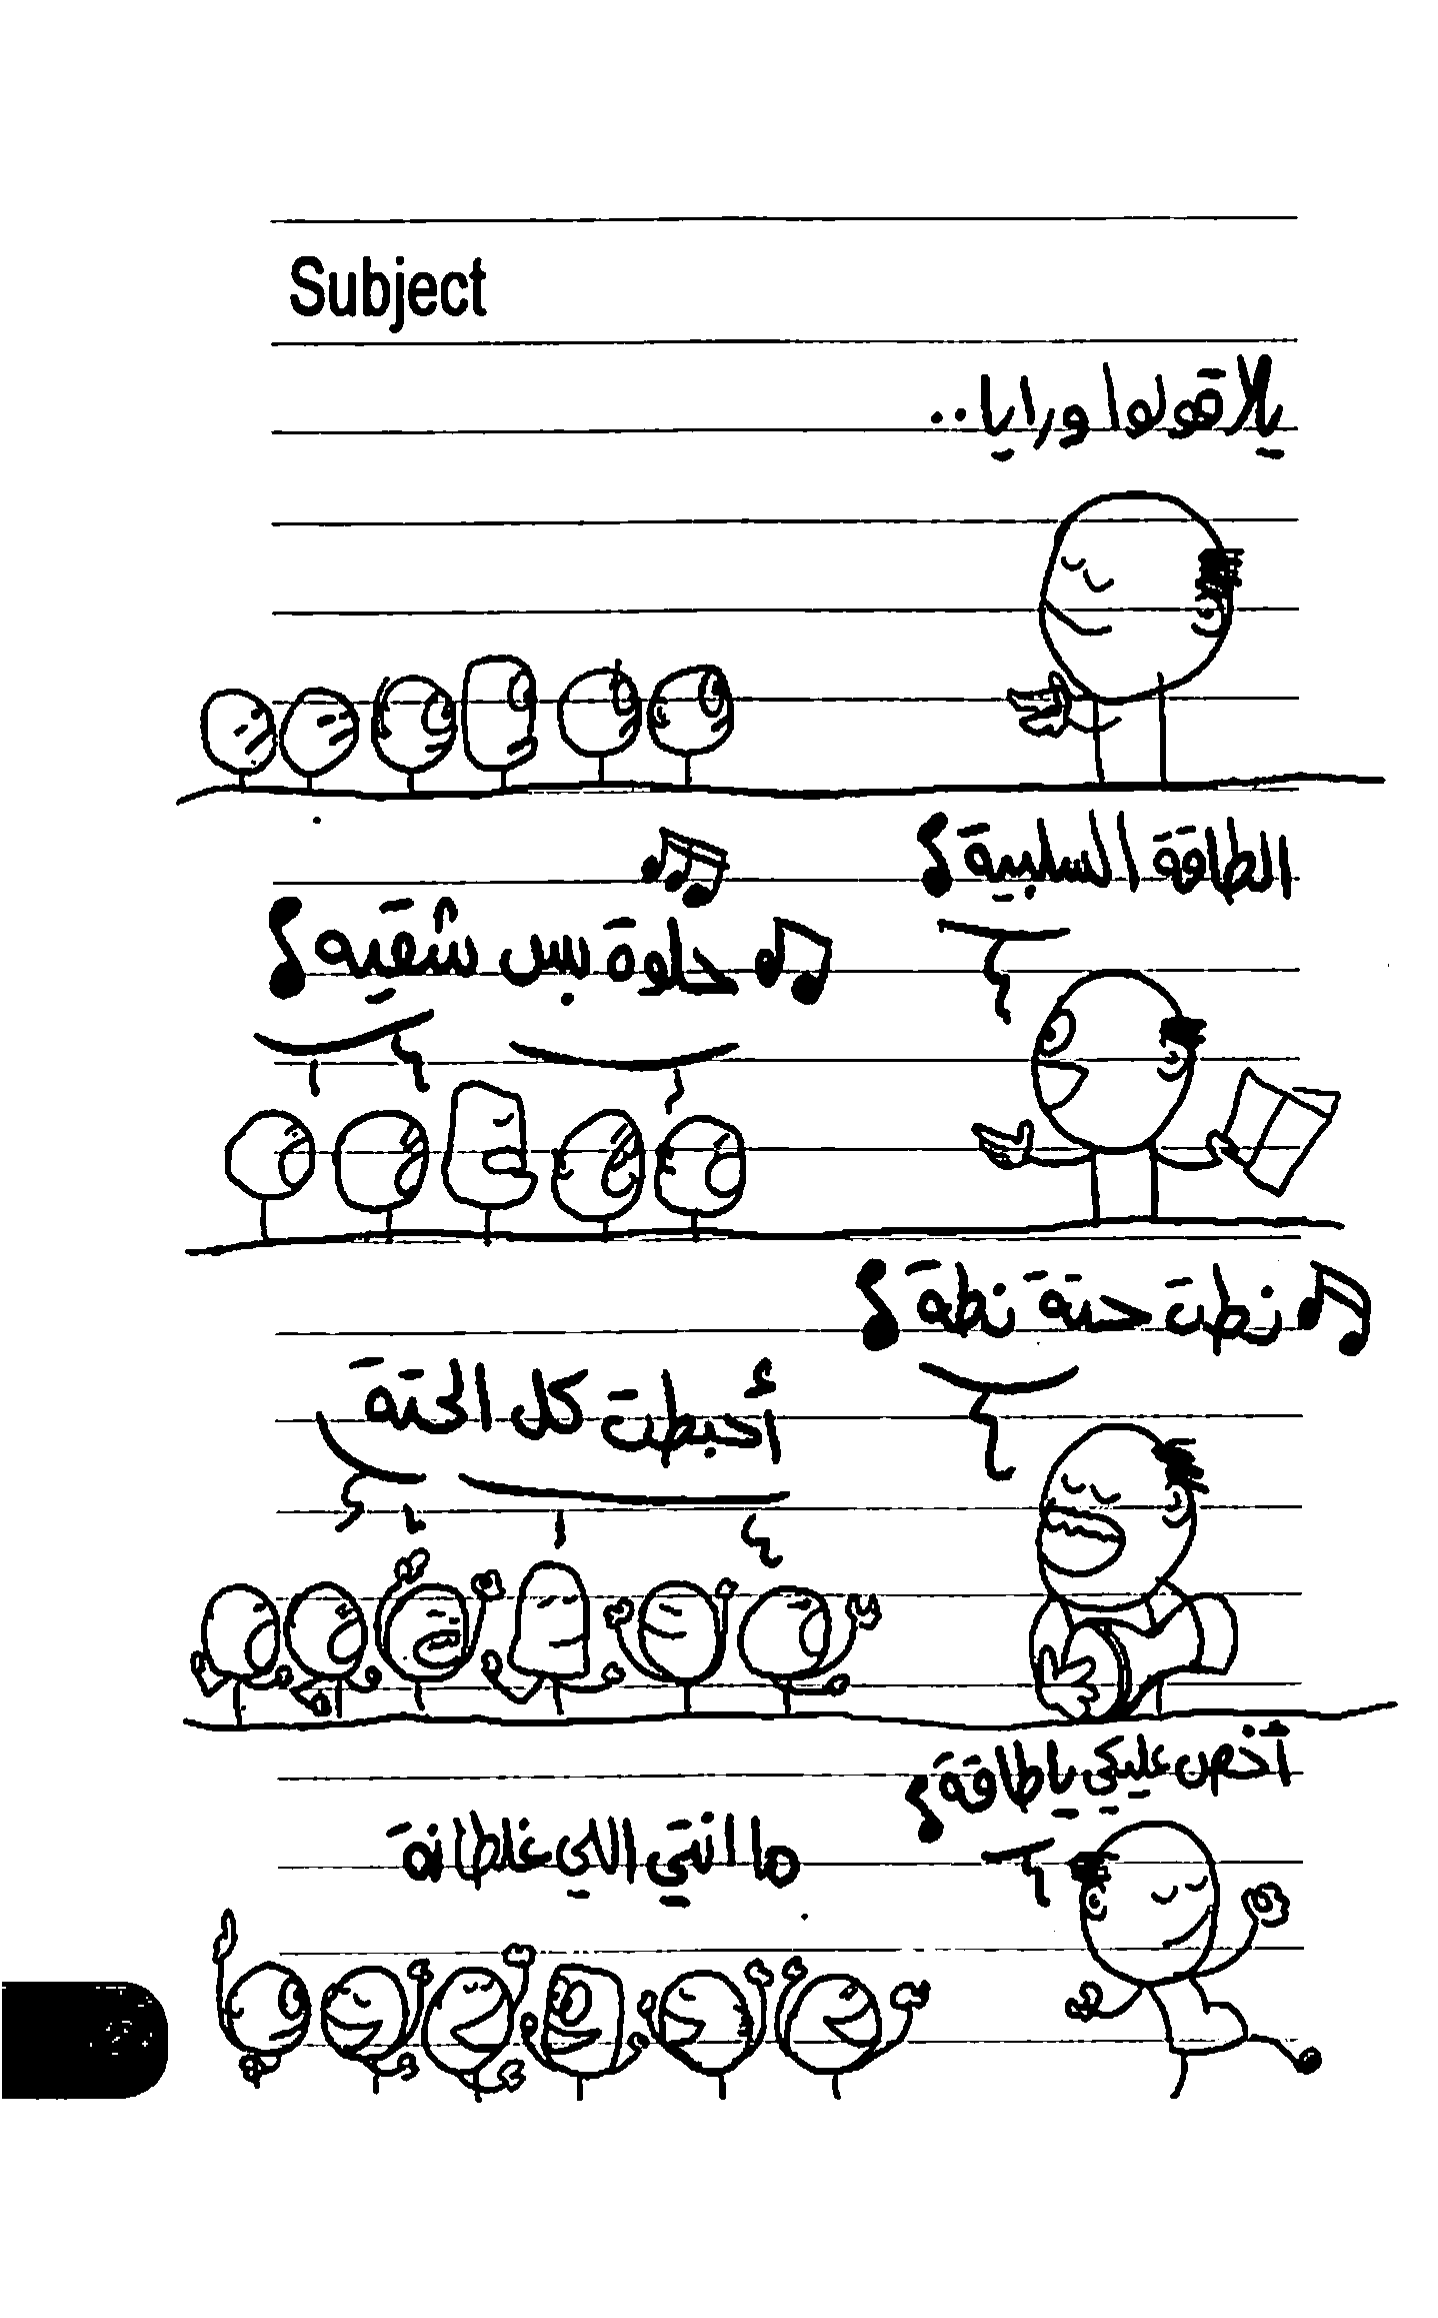 Subject
يلا قولوا ورايا ..
الطاقة السلبية
حلوة بس شقية
نطت حتة نطة
أحبطت كل الحتة
أخص عليكي يا طاقة
ما انتي اللي غلطانة